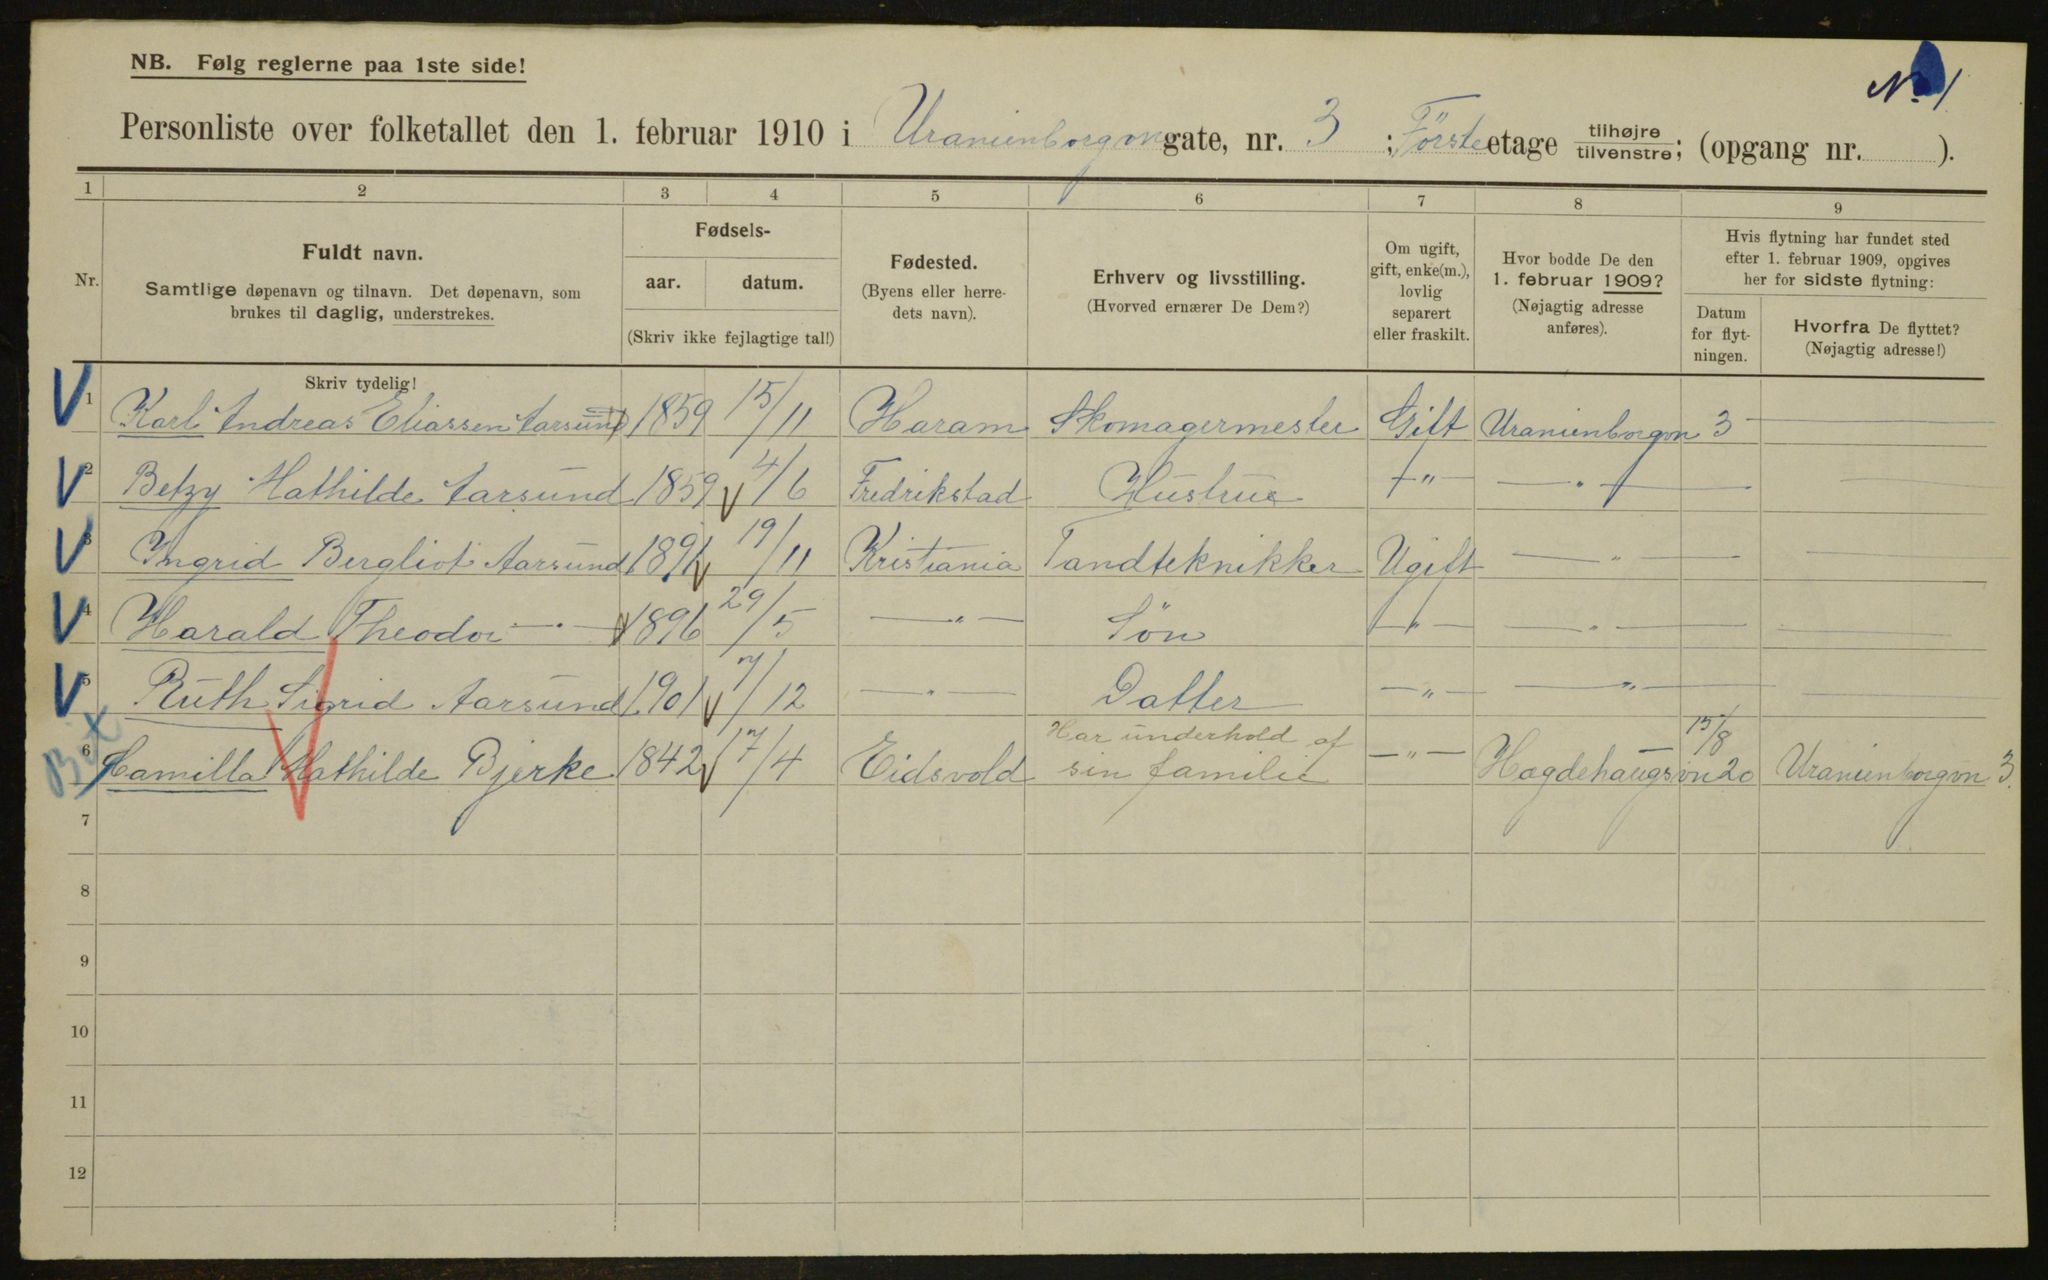 NB. Følg reglerne paa 1ste side!
No 1
Personliste over folketallet den 1. februar 1910 i Uranienborgvn gate, nr. 3 ; Förste etage tilhøjre / tilvenstre; (opgang nr. ).
1 2 3 4 5 6 7 8 9
Nr.
Fuldt navn.
Samtlige døpenavn og tilnavn. Det døpenavn, som
brukes til daglig, understrekes.
Skriv tydelig!
Fødsels-
aar. datum.
(Skriv ikke fejlagtige tal!)
Fødested.
(Byens eller herre-
dets navn).
Erhverv og livsstilling.
(Hvorved ernærer De Dem?)
Om ugift,
gift, enke(m.),
lovlig
separert
eller fraskilt.
Hvor bodde De den
1. februar 1909?
(Nøjagtig adresse
anføres).
Hvis flytning har fundet sted
efter 1. februar 1909, opgives
her for sidste flytning:
Datum
for flyt-
ningen.
Hvorfra De flyttet?
(Nøjagtig adresse!)
1 Karl Andreas Eliassen Aarsund 1859 15/11 Haram Skomagermester Gift Uranienborgvn 3 —
2 Betzy Mathilde Aarsund 1859 4/6 Fredrikstad Hustrue —"— —"—
3 Ingrid Bergliot Aarsund 1891 19/11 Kristiania Tandteknikker Ugift —"—
4 Harald Theodor —"— 1896 29/5 —"— Sön —"— —"—
5 Ruth Sigrid Aarsund 1901 7/12 —"— Datter —"— —"—
6 Camilla Mathilde Bjerke 1842 17/4 Eidsvold Har underhold af sin familie —"— Hægdehaugsvn 20 15/8 Uranienborgvn 3.
7
8
9
10
11
12